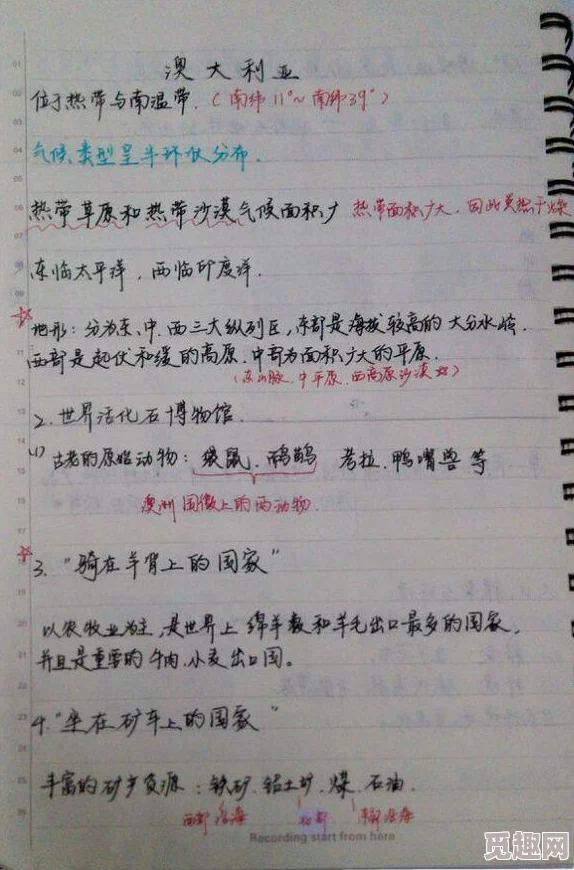 澳大利亚
位于热带与南温带.（南纬11°~南纬39°）
气候类型呈半环状分布.
热带草原和热带沙漠气候面积广 热带面积广大,因此炎热干燥
东临太平洋,西临印度洋.
☆
地形：分为东、中、西三大纵列区,东部是海拔较高的大分水岭.
西部是起伏和缓的高原.中部为面积广大的平原.
（东山脉.中平原.西高原沙漠
2.世界活化石博物馆.
(1) 古老的原始动物：袋鼠.鸸鹋 考拉.鸭嘴兽等
澳洲国徽上的两动物.
☆
3."骑在羊背上的国家"
以农牧业为主,是世界上绵羊数和羊毛出口最多的国家,
并且是重要的牛肉,小麦出口国。
4."坐在矿车上的国家"
丰富的矿产资源：铁矿.铝土矿.煤.石油.
西部沿海
Recording start from here
觅趣网